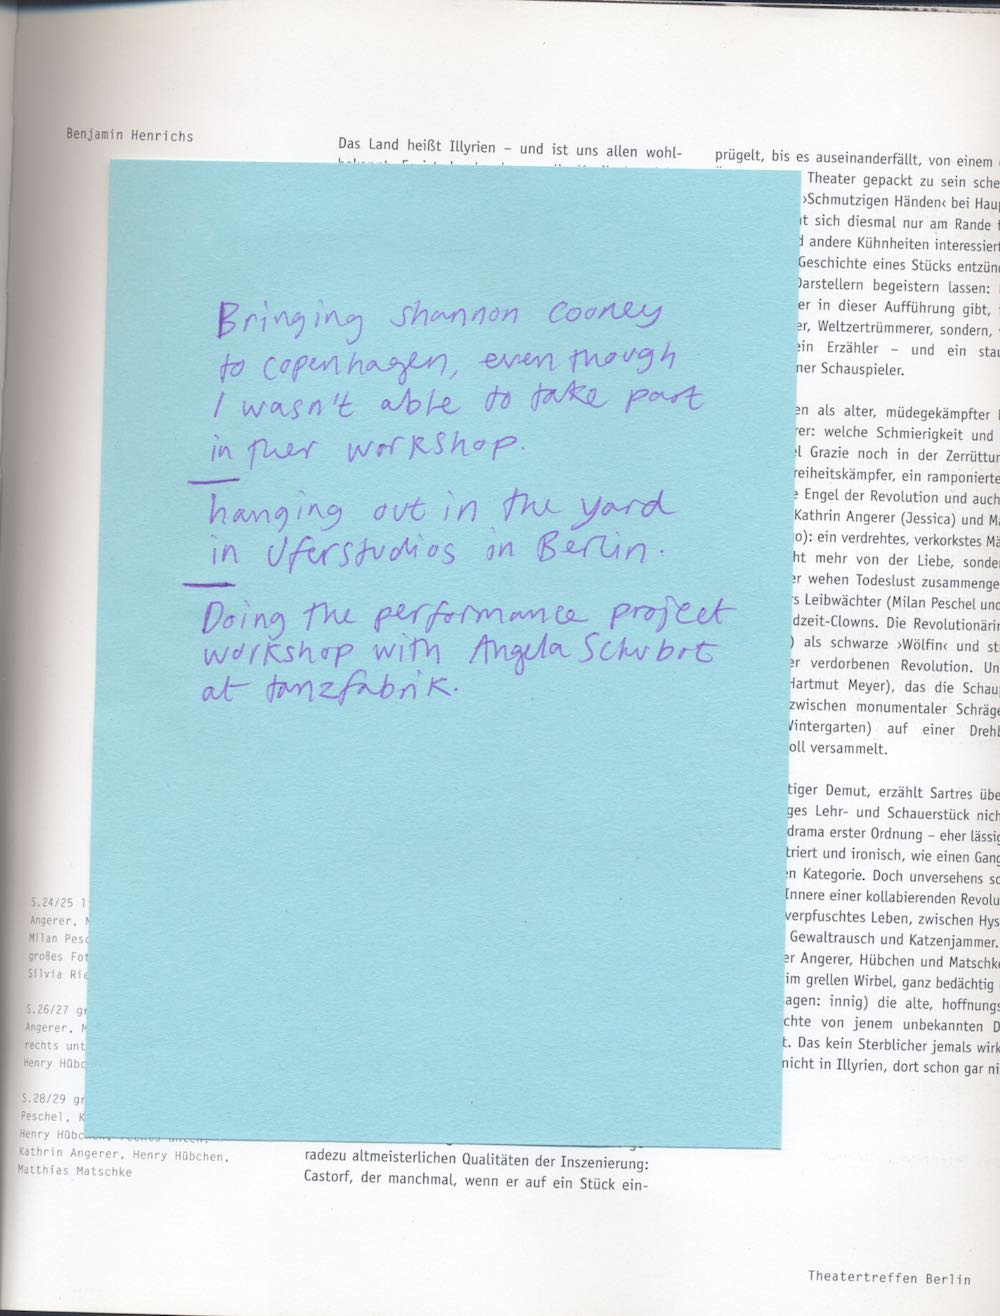 Benjamin Henrichs
Das Land heißt Illyrien – und ist uns allen wohl-
Bringing shannon cooney
to copenhagen, even though
I wasn't able to take part
in ther workshop.
hanging out in the yard
in Uferstudios in Berlin.
Doing the performance project
workshop with Angela Schubot
at tanzfabrik.
radezu altmeisterlichen Qualitäten der Inszenierung:
Castorf, der manchmal, wenn er auf ein Stück ein-
prügelt, bis es auseinanderfällt, von einem
Theater gepackt zu sein
›Schmutzigen Händen‹ bei
sich diesmal nur am Rande
andere Kühnheiten
Geschichte eines Stücks
Darstellern begeistern lassen:
in dieser Aufführung gibt,
Weltzertrümmerer, sondern,
Erzähler – und ein
Schauspieler.
als alter, müdegekämpfter
welche Schmierigkeit und
Grazie noch in der
ein
Engel der Revolution und auch
Kathrin Angerer (Jessica) und
ein verdrehtes, verkorkstes
mehr von der Liebe,
wehen Todeslust
Leibwächter (Milan Peschel und
Die
als schwarze ›Wölfin‹ und
verdorbenen Revolution.
Hartmut Meyer), das die
zwischen monumentaler
Wintergarten) auf einer
versammelt.
Demut, erzählt Sartres
Lehr- und Schauerstück
drama erster Ordnung – eher
und ironisch, wie einen
Kategorie. Doch unversehens
Innere einer kollabierenden
verpfuschtes Leben, zwischen
Gewaltrausch und Katzenjammer.
Angerer, Hübchen und
im grellen Wirbel, ganz bedächtig
innig) die alte,
von jenem unbekannten
Das kein Sterblicher jemals
nicht in Illyrien, dort schon gar
S.24/25
Angerer,
Milan
großes
Silvia
S.26/27
Angerer,
rechts
Henry
S.28/29
Peschel,
Henry
Kathrin Angerer, Henry Hübchen,
Matthias Matschke
Theatertreffen Berlin